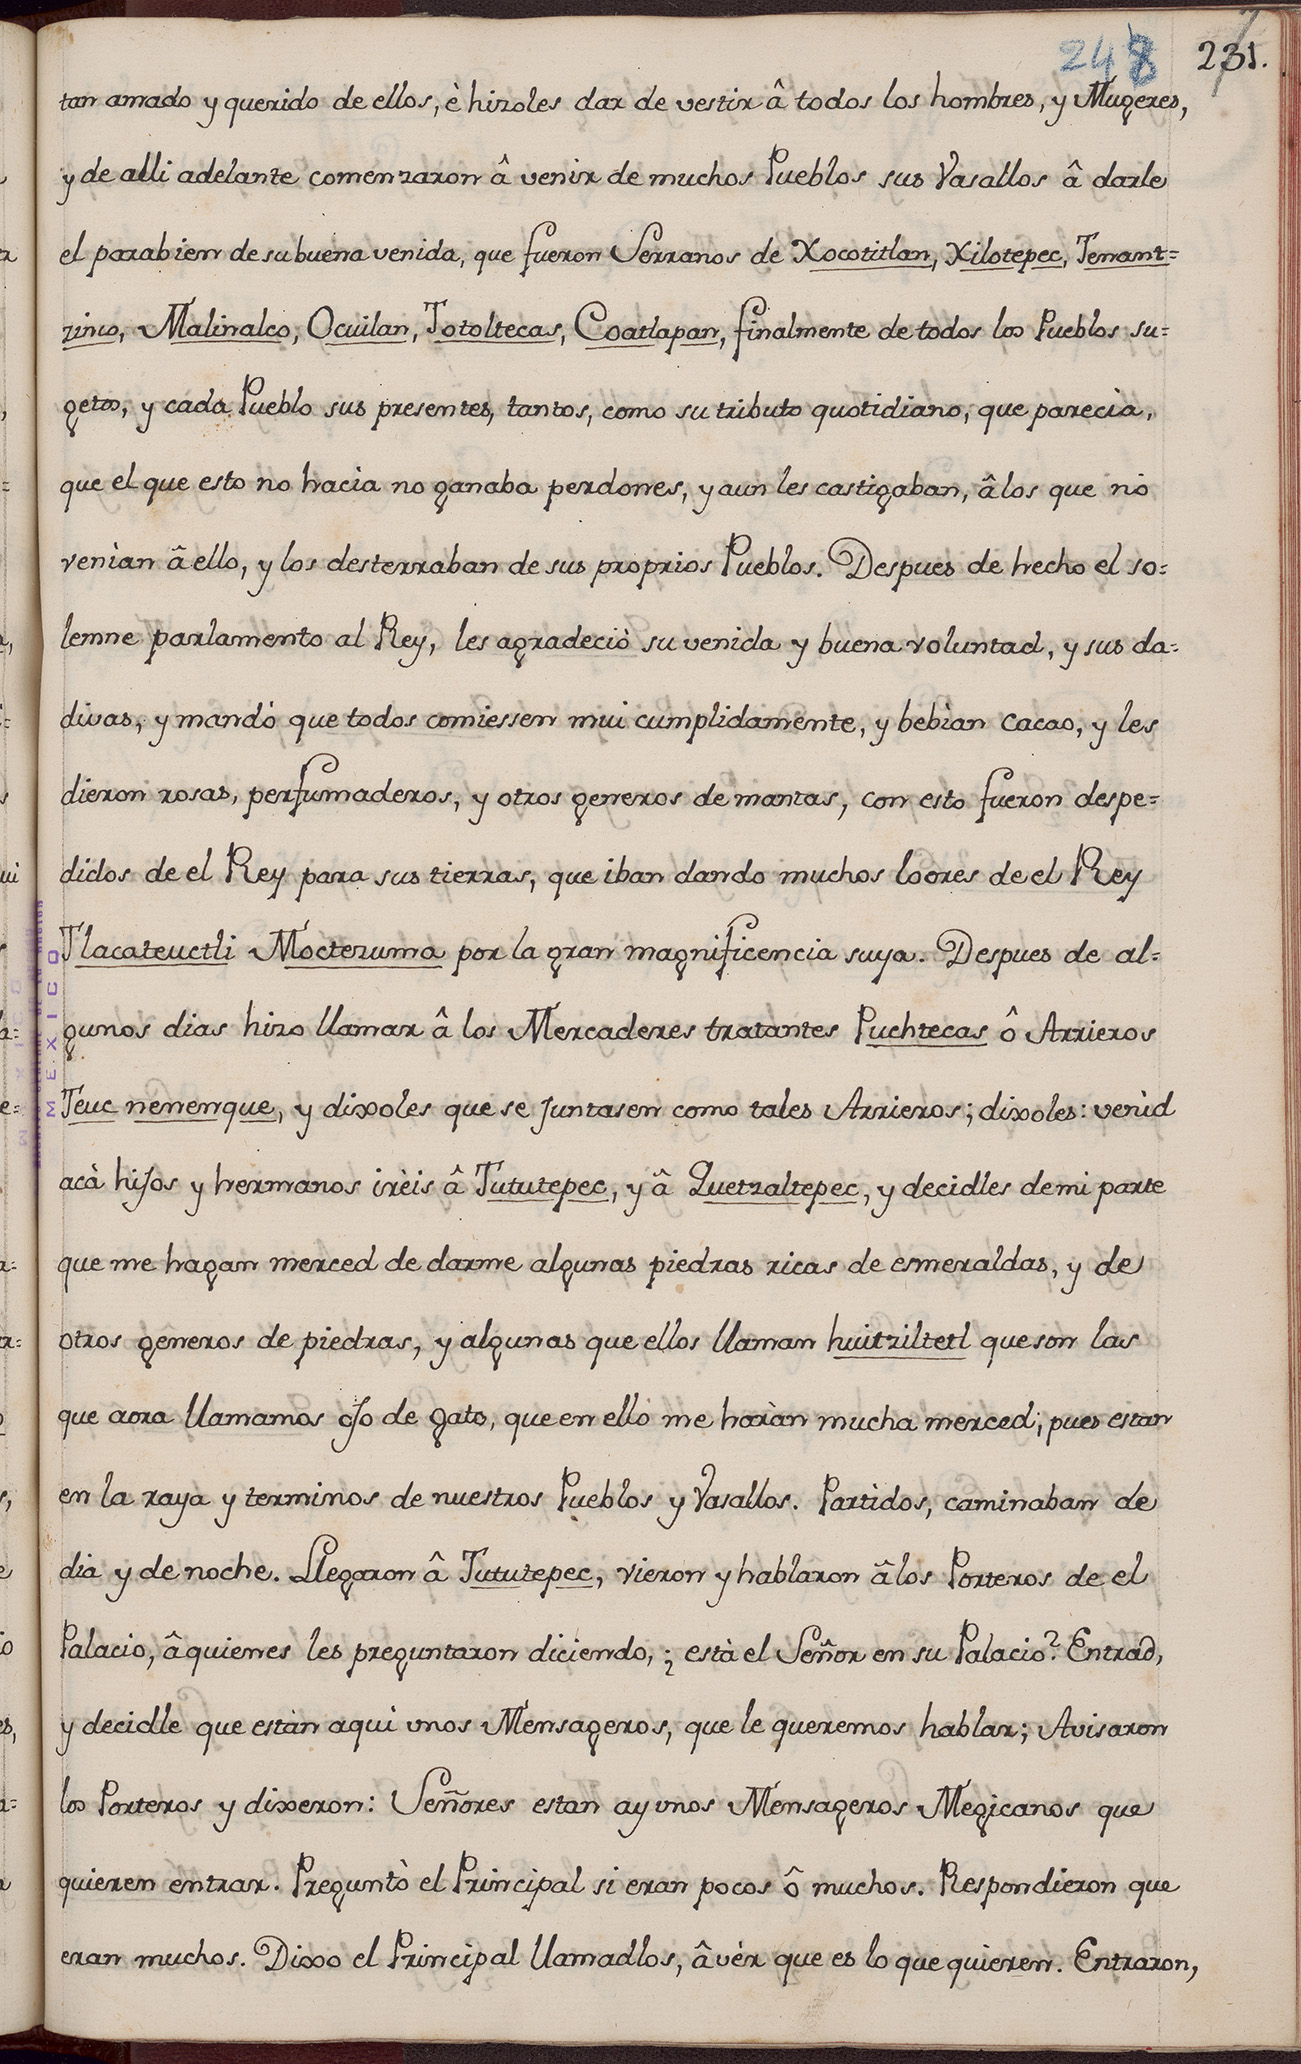 248 231.
tan amado y querido de ellos, è hizoles dar de vestir â todos los hombres, y Mugeres,
y de alli adelante comenzaron â venir de muchos Pueblos sus Vasallos â darle
el parabien de su buena venida, que fueron Serranos de Xocotitlan, Xilotepec, Tenant=
zinco, Malinalco, Ocuilan, Totoltecas, Coatlapan, finalmente de todos los Pueblos su=
getos, y cada Pueblo sus presentes, tantos, como su tributo quotidiano, que parecia,
que el que esto no hacia no ganaba perdones, y aun les castigaban, â los que no
venian â ello, y los desterraban de sus proprios Pueblos. Despues de hecho el so=
lemne parlamento al Rey, les agradeciò su venida y buena voluntad, y sus da=
divas, y mandò que todos comiessen mui cumplidamente, y bebian cacao, y les
dieron rosas, perfumaderos, y otros generos de mantas, con esto fueron despe=
didos de el Rey para sus tierras, que iban dando muchos loores de el Rey
Tlacateuctli Moctezuma por la gran magnificencia suya. Despues de al=
gunos dias hizo llamar â los Mercaderes tratantes Puchtecas ô Arrieros
Teuc nenenque, y dixoles que se juntasen como tales Arrieros; dixoles: venid
acà hijos y hermanos irèis â Tututepec, y â Quetzaltepec, y decidles de mi parte
que me hagan merced de darme algunas piedras ricas de esmeraldas, y de
otros gèneros de piedras, y algunas que ellos llaman huitziltetl que son las
que aora llamamos ojo de gato, que en ello me haràn mucha merced; pues estan
en la raya y terminos de nuestros Pueblos y Vasallos. Partidos, caminaban de
dia y de noche. Llegaron â Tututepec, vieron y hablaron â los Porteros de el
Palacio, â quienes les preguntaron diciendo, ¿ està el Señor en su Palacio? Entrad,
y decidle que estàn aqui unos Mensageros, que le queremos hablar; Avisaron
los Porteros y dixeron: Señores estan ay unos Mensageros Megicanos que
quieren entrar. Preguntò el Principal si eran pocos ô muchos. Respondieron que
eran muchos. Dixo el Principal llamadlos, â vèr que es lo que quieren. Entraron,
MEXICO